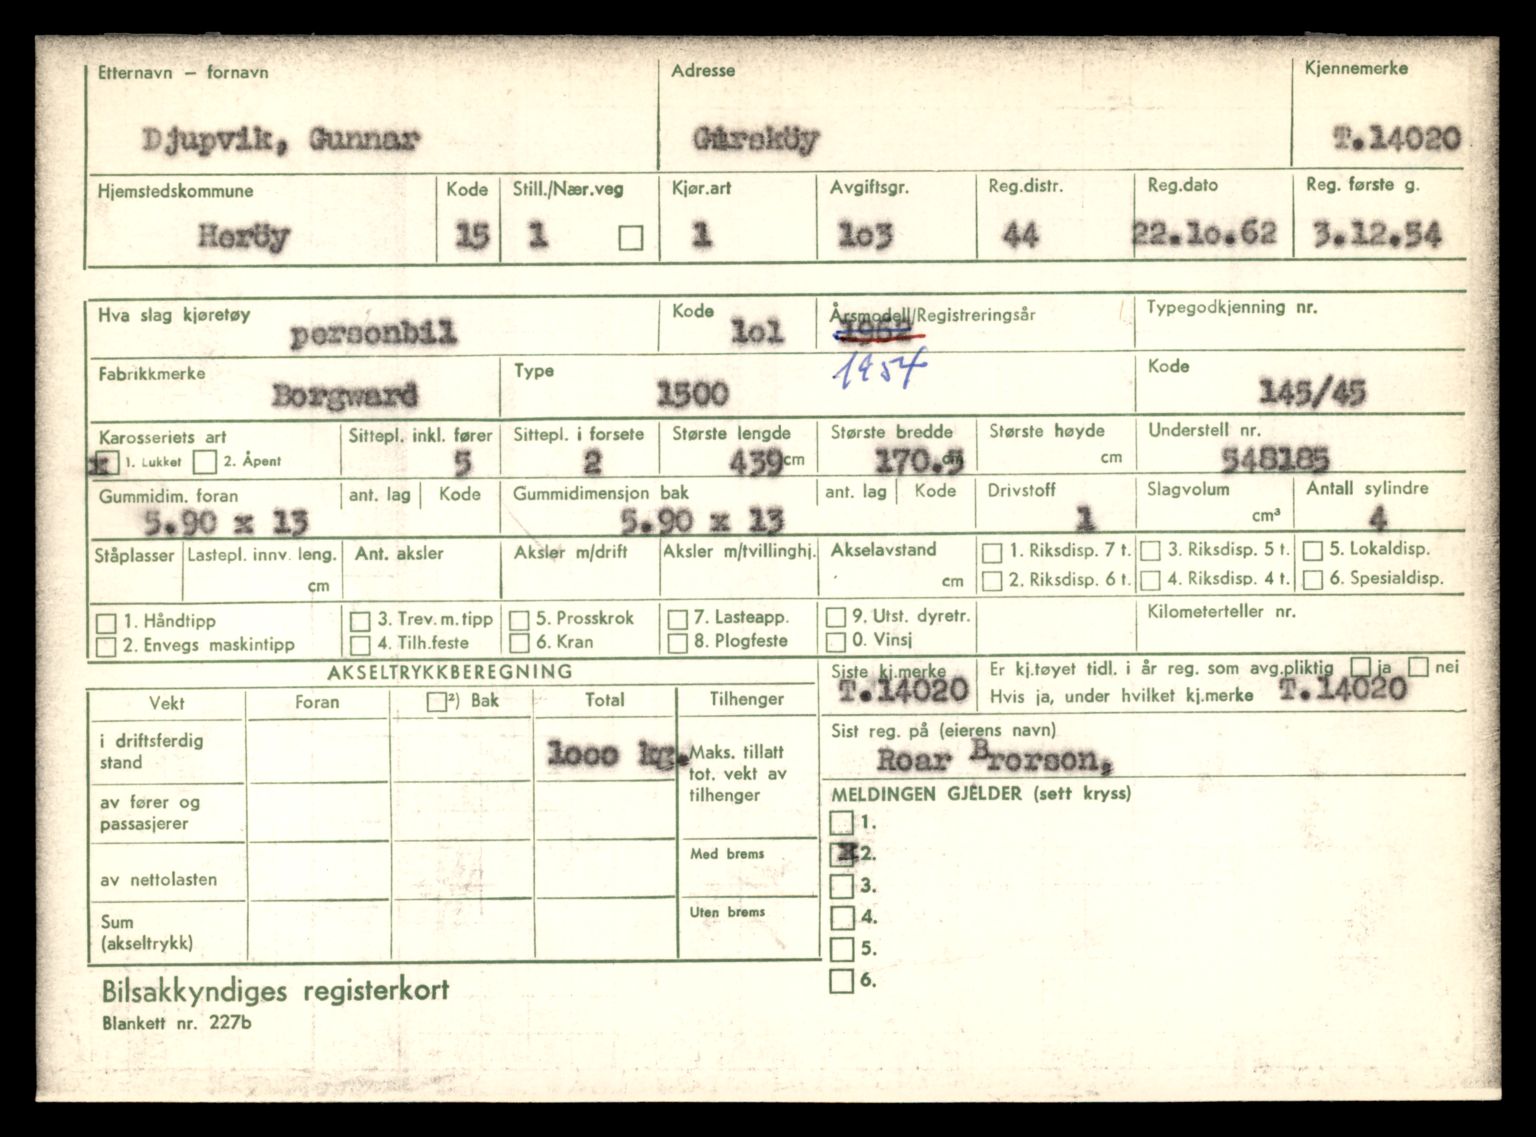 Etternavn – fornavn Adresse Kjennemerke
Djupvik, Gunnar Gursköy T.14020
Hjemstedskommune Kode Still./Nær.veg Kjør.art Avgiftsgr. Reg.distr. Reg.dato Reg. første g.
Heröy 15 1 1 1o3 44 22.1o.62 3.12.54
Hva slag kjøretøy Kode Årsmodell/Registreringsår Typegodkjenning nr.
personbil 1o1 1962
Fabrikkmerke Type 1954 Kode
Borgward 1500 145/45
Karosseriets art Sittepl. inkl. fører Sittepl. i forsete Største lengde Største bredde Største høyde Understell nr.
x 1. Lukket 2. Åpent 5 2 439 cm 170.5 cm cm 548185
Gummidim. foran ant. lag Kode Gummidimensjon bak ant. lag Kode Drivstoff Slagvolum Antall sylindre
5.90 x 13 5.90 x 13 1 cm³ 4
Ståplasser Lastepl. innv. leng. Ant. aksler Aksler m/drift Aksler m/tvillinghj. Akselavstand 1. Riksdisp. 7 t. 3. Riksdisp. 5 t. 5. Lokaldisp.
cm cm 2. Riksdisp. 6 t. 4. Riksdisp. 4 t. 6. Spesialdisp.
1. Håndtipp 3. Trev. m. tipp 5. Prosskrok 7. Lasteapp. 9. Utst. dyretr. Kilometerteller nr.
2. Envegs maskintipp 4. Tilh.feste 6. Kran 8. Plogfeste 0. Vinsj
AKSELTRYKKBEREGNING Siste kj.merke Er kj.tøyet tidl. i år reg. som avg.pliktig ja nei
T.14020 Hvis ja, under hvilket kj.merke T.14020
Vekt Foran ²) Bak Total Tilhenger
Sist reg. på (eierens navn)
i driftsferdig stand 1000 kg. Maks. tillatt tot. vekt av tilhenger Roar Brorson,
av fører og passasjerer
MELDINGEN GJELDER (sett kryss)
1.
Med brems x 2.
av nettolasten 3.
Sum (akseltrykk) Uten brems 4.
5.
6.
Bilsakkyndiges registerkort
Blankett nr. 227b